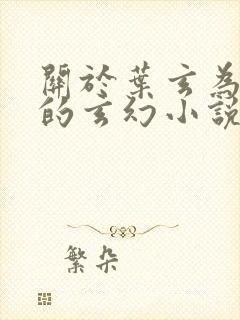 關於葉玄為
的玄幻小說
繁朵